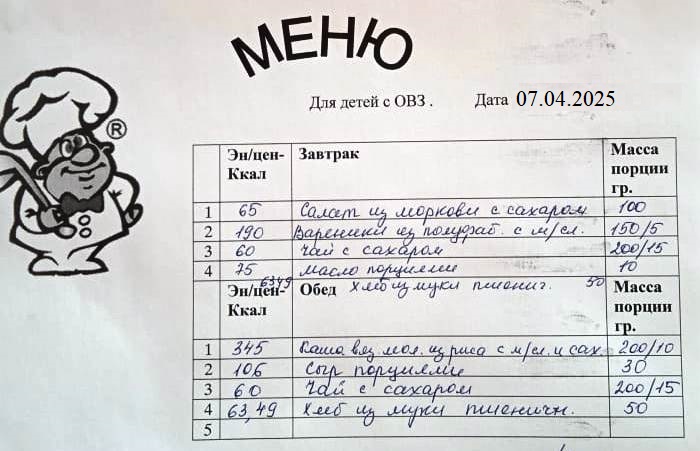 МЕНЮ
Для детей с ОВЗ . Дата 07.04.2025
®
Эн/цен-Ккал Завтрак Масса порции гр.
1 65 Салат из моркови с сахаром 100
2 190 Вареники из полуфаб. с м/сл. 150/5
3 60 Чай с сахаром 200/15
4 75 Масло порциями 10
63,49 Хлеб из муки пшениг. 50
Эн/цен-Ккал Обед Масса порции гр.
1 345 Каша вяз мол. из риса с м/сл. и сах. 200/10
2 106 Сыр порциями 30
3 60 Чай с сахаром 200/15
4 63,49 Хлеб из муки пшеничн. 50
5